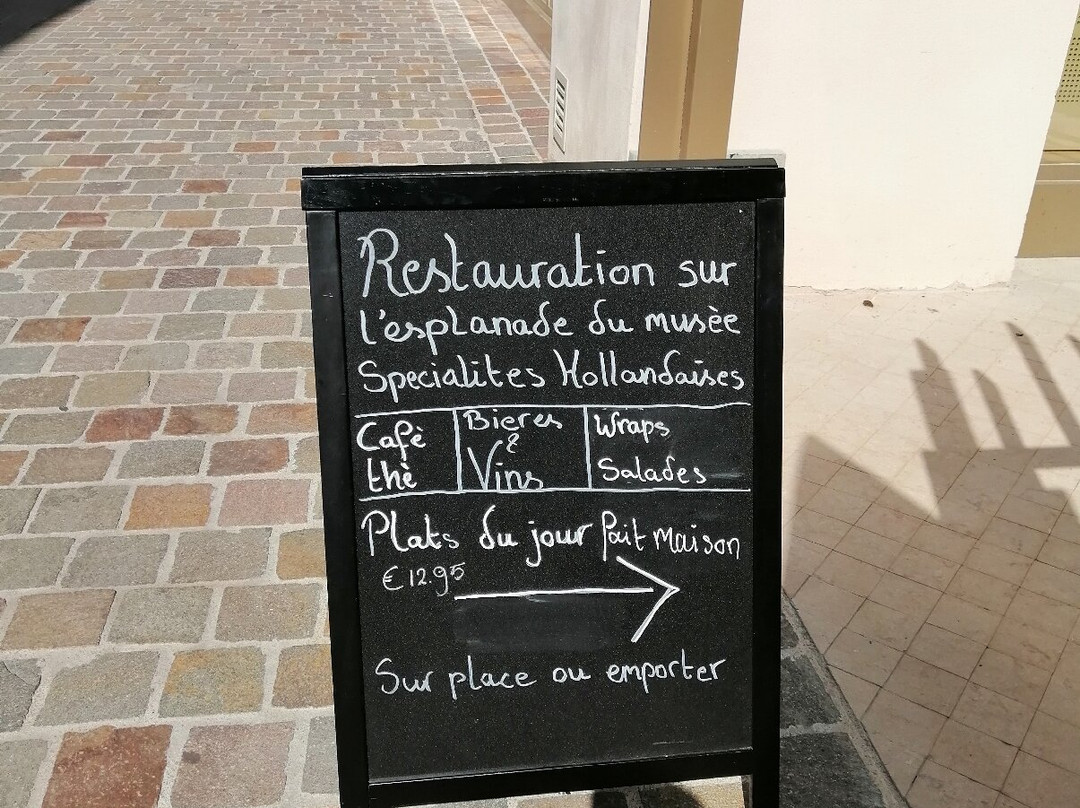 Restauration sur
l'esplanade du musèe
Specialites Hollandaises
Cafè
thè
Bieres
&
Vins
Wraps
Salades
Plats du jour fait maison
€12.95
Sur place ou emporter